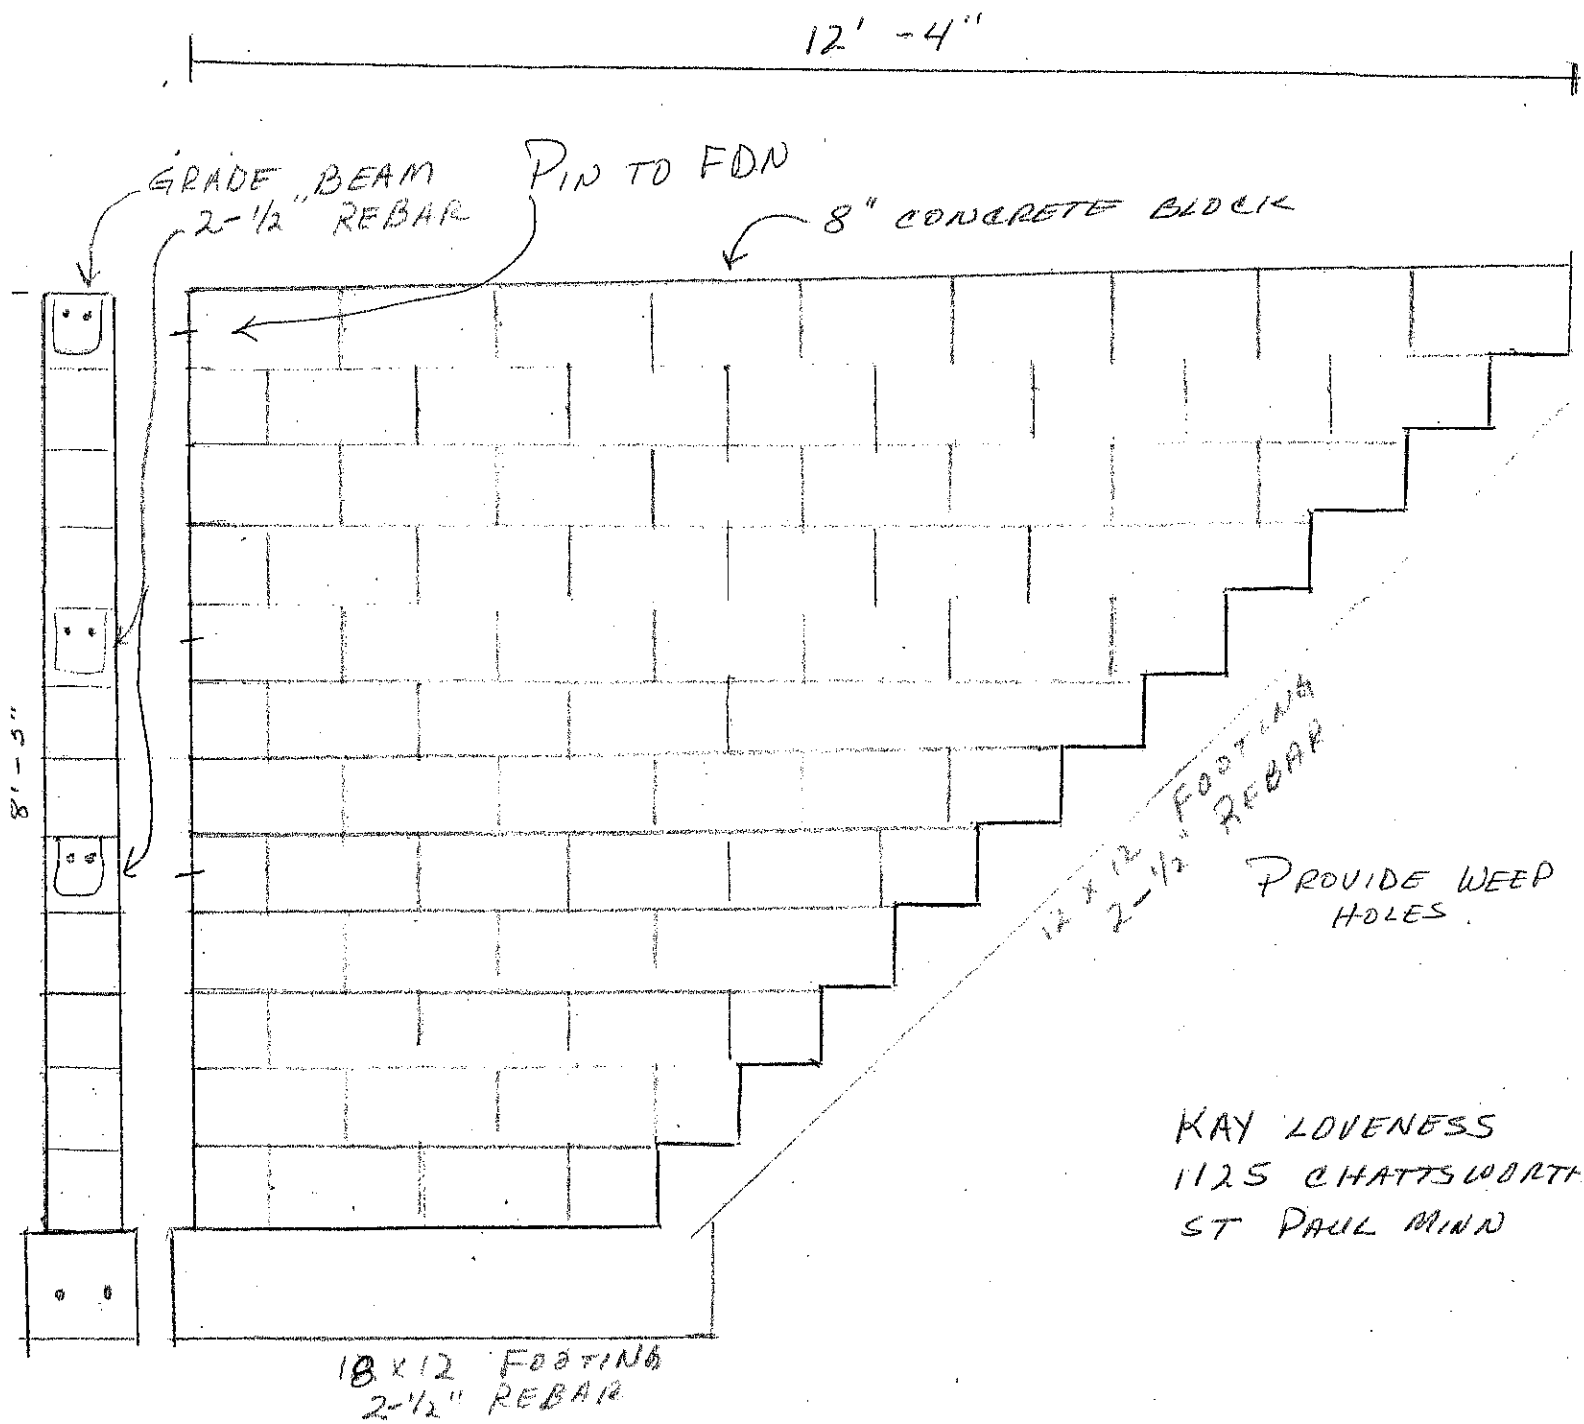 12' -4"
GRADE BEAM
2-1/2" REBAR
PIN TO FDN
8" CONCRETE BLOCK
8'-5"
12 X 12 FOOTING
2-1/2" REBAR
PROVIDE WEEP
HOLES.
KAY LOVENESS
1125 CHATTSWORTH
ST PAUL MINN
18 X 12 FOOTING
2-1/2" REBAR